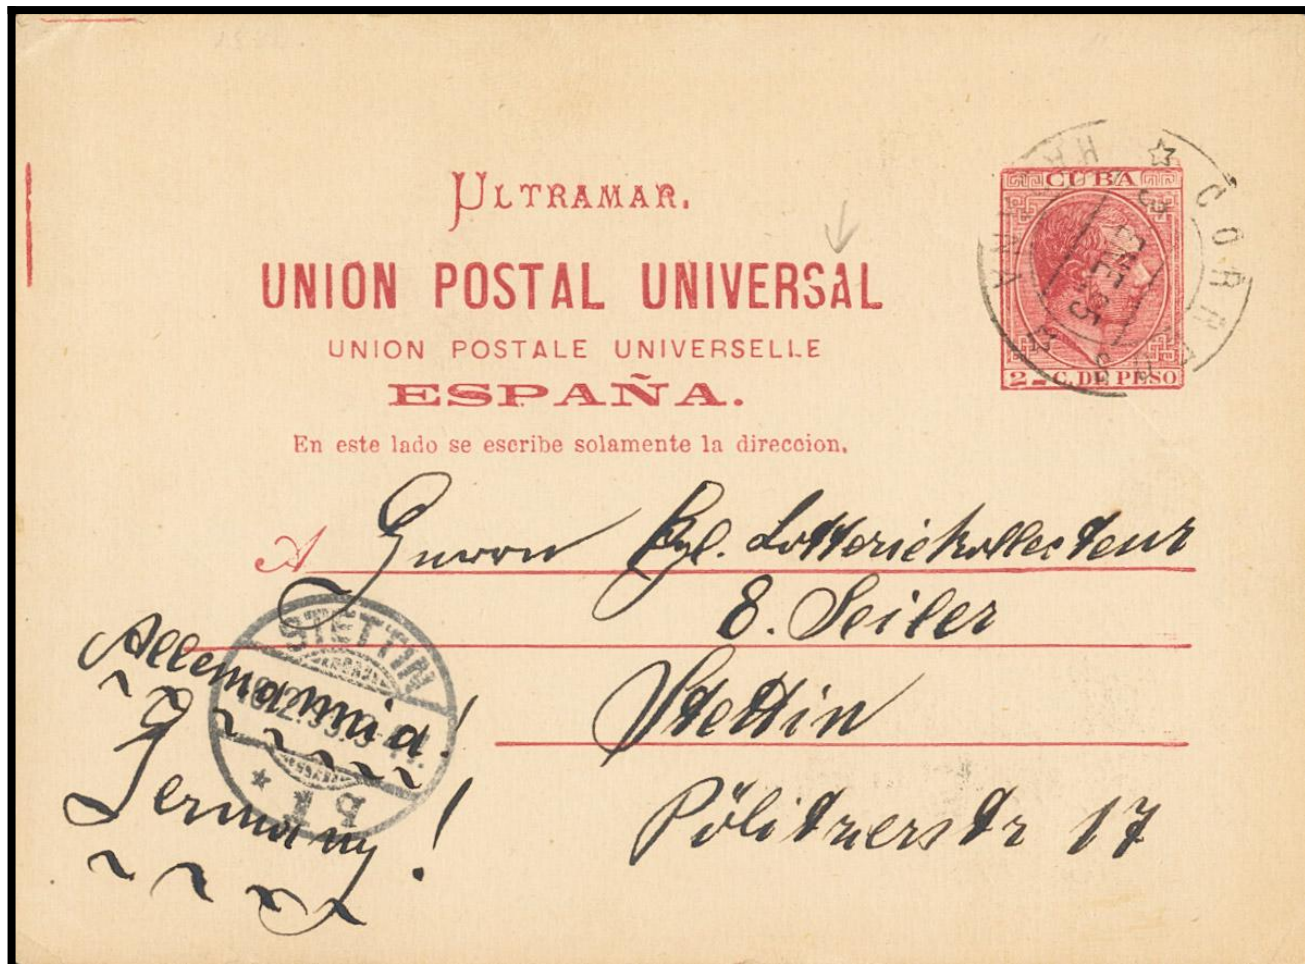 ULTRAMAR.
UNION POSTAL UNIVERSAL
UNION POSTALE UNIVERSELLE
ESPAÑA.
En este lado se escribe solamente la direccion.
CUBA
2 C. DE PESO
CORREOS
HABANA
A Herrn Kgl. Lotteriekollecteur
E. Seiler
Stettin
Pölitzerstr 17
Allemannia!
Germany!
STETTIN